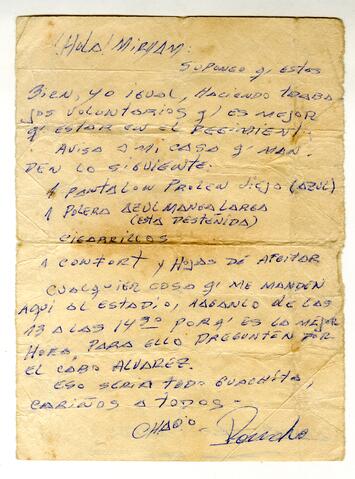 ¡HOLA! MIRYAM:
SUPONGO q' ESTES
BIEN, YO IGUAL, HACIENDO TRABA
JOS VOLUNTARIOS q' ES MEJOR
q' ESTAR EN EL REGIMIENT.
AVISA A MI CASA q' MAN
DEN LO SIGUIENTE:
1 PANTALON PROLEN VIEJO (AZUL)
1 POLERA AZUL MANGA LARGA
(ESTA DESTEÑIDA)
CIGARRILLOS
1 CONFORT Y HOJAS DE AFEITAR
CUALQUIER COSA q' ME MANDEN
AQUI AL ESTADIO, HAGANLO DE LAS
13 A LAS 14³⁰ POR q' ES LA MEJOR
HORA, PARA ELLO PREGUNTEN POR
EL CABO ALVAREZ.
ESO SERIA TODO GUACHITA,
CARIÑOS A TODOS-
CHAO- Poncho